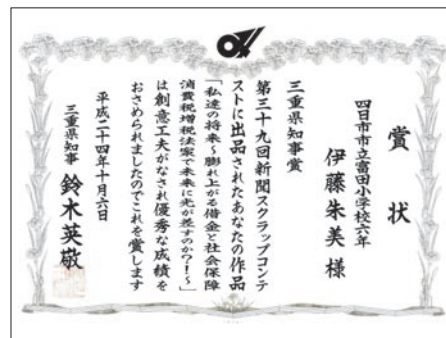 賞状
四日市市立富田小学校六年
伊藤朱美様
三重県知事賞
第三十九回新聞スクラップコンテ
ストに出品されたあなたの作品
「私達の将来〜膨れ上がる借金と社会保障
消費税増税法案で未来に光が差すのか?!〜」
は創意工夫がなされ優秀な成績を
おさめられましたのでこれを賞します
平成二十四年十月六日
三重県知事 鈴木英敬